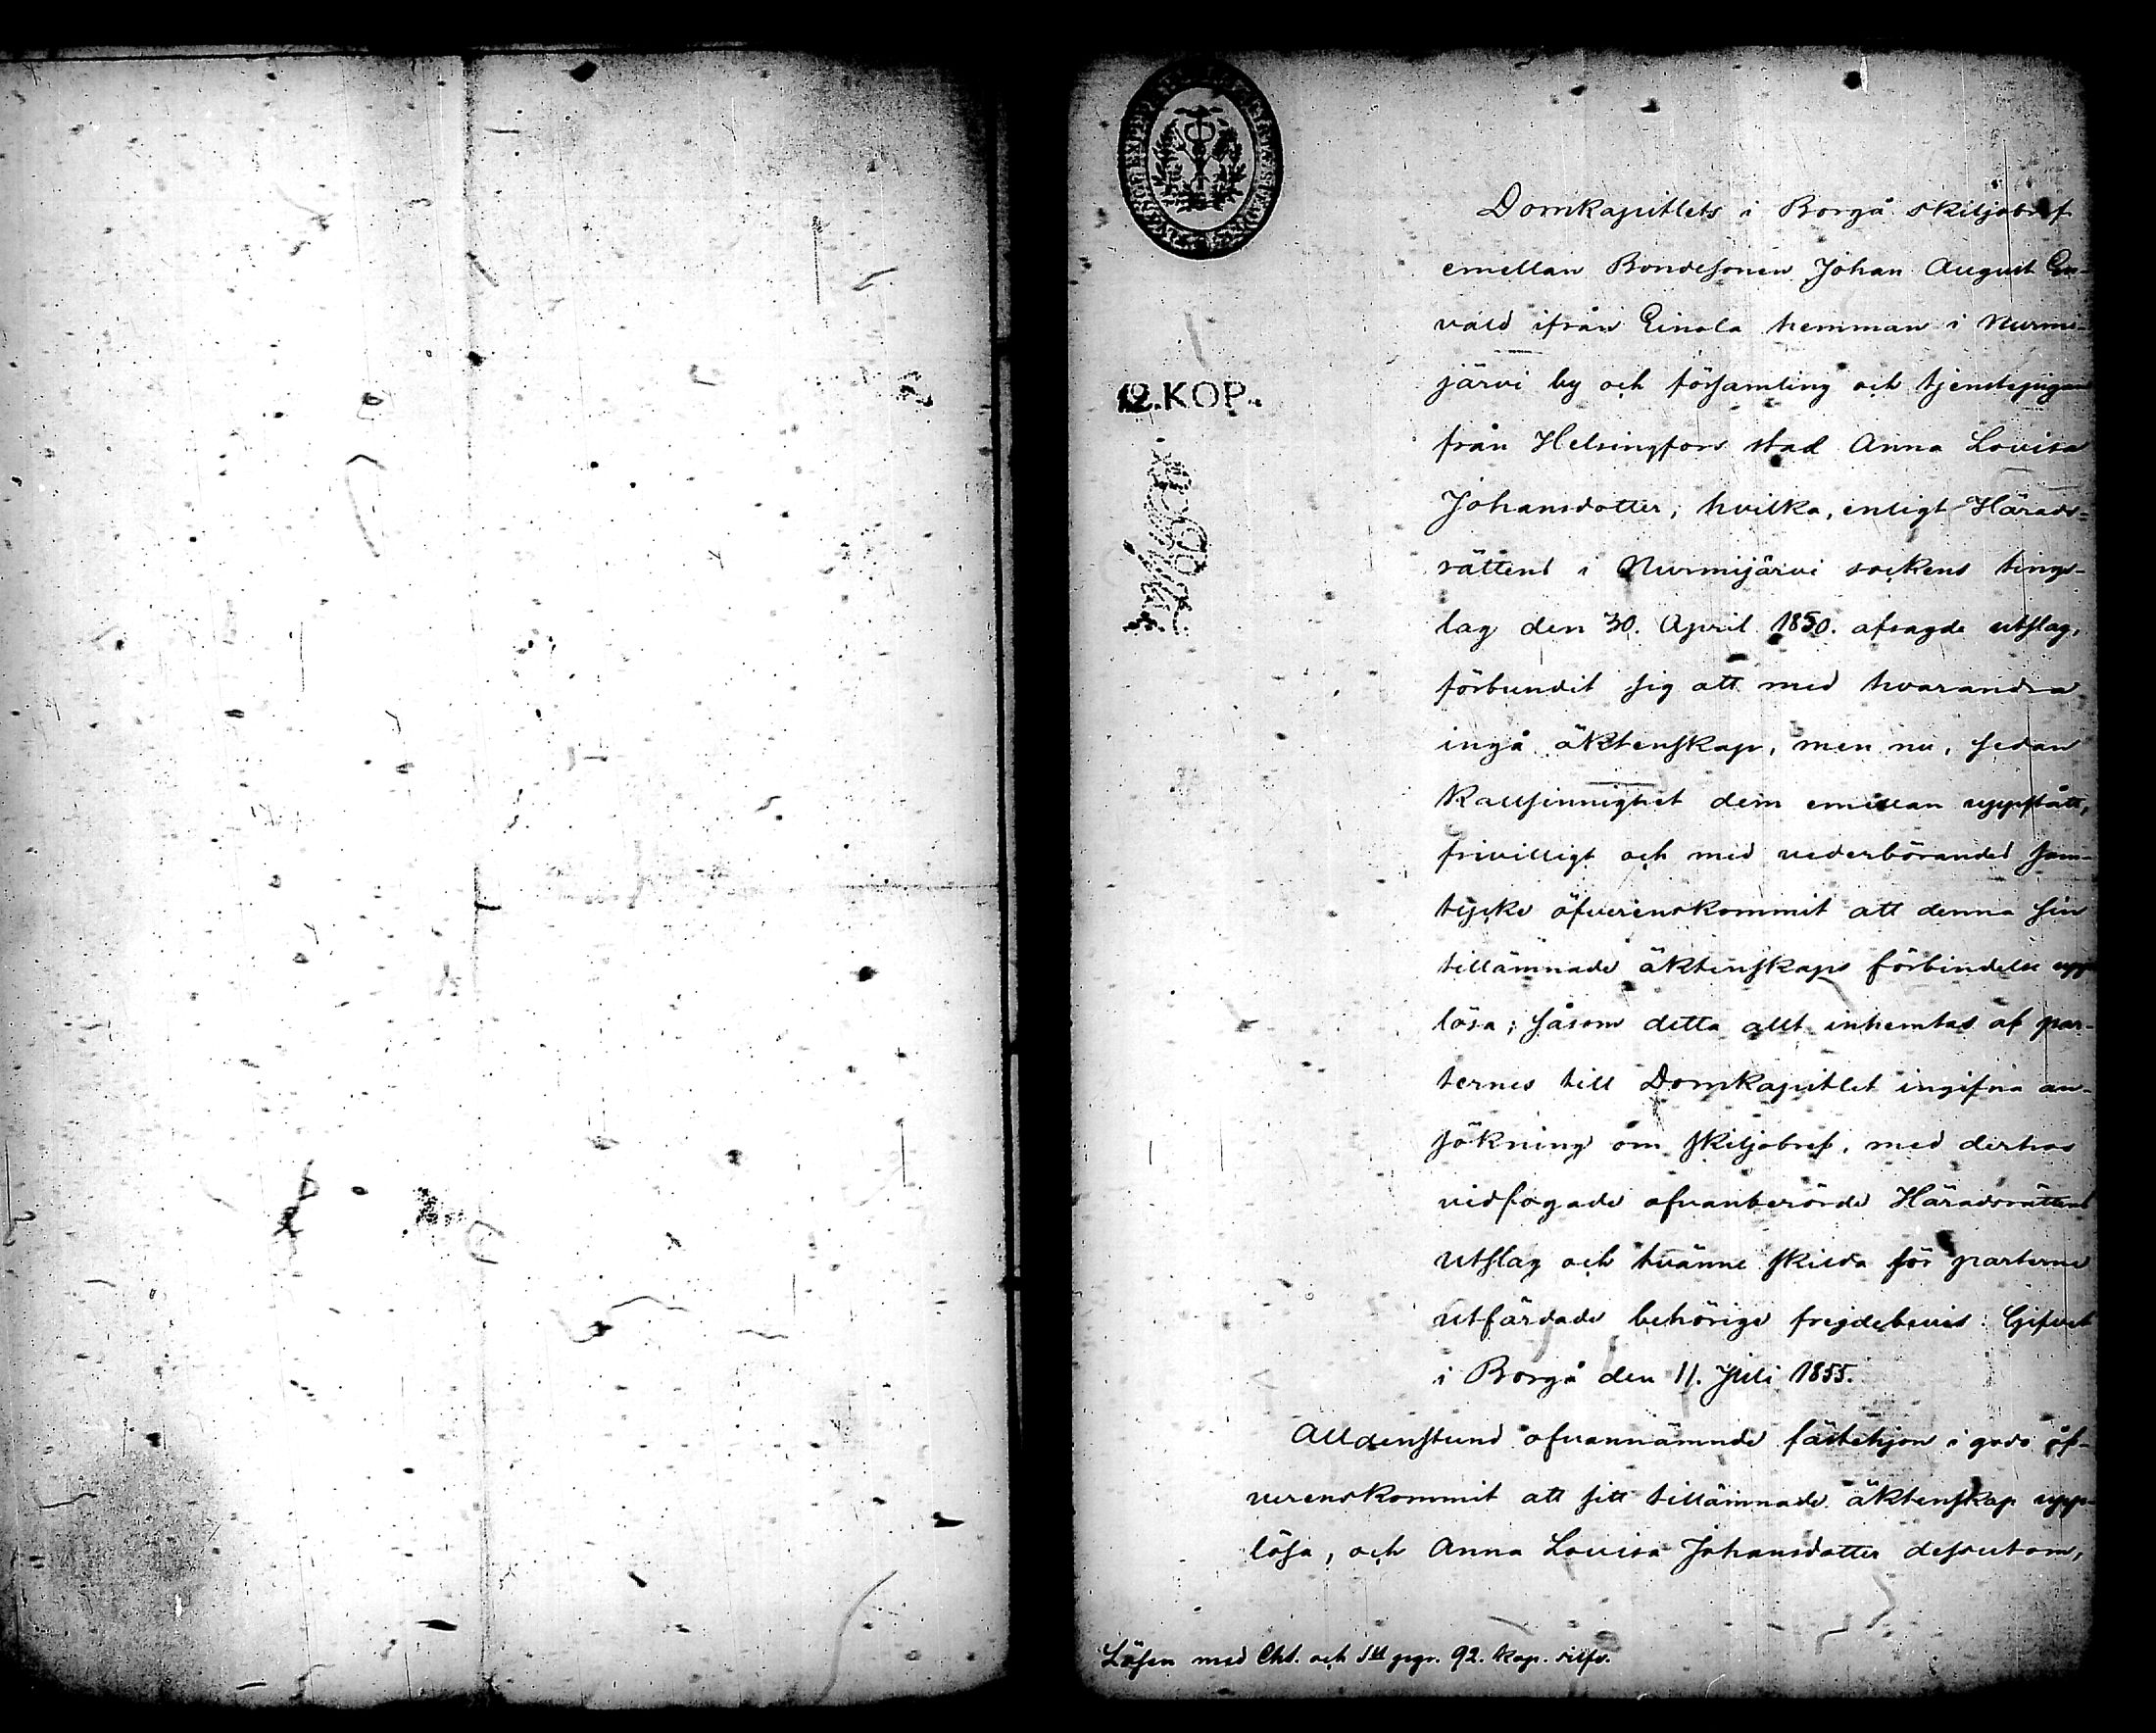 Domkapitlets i Borgå skiljobref
emellan Bondesonen Johan August En-
vald ifrån Einola hemman i Nurmi-
järvi by och församling och tjenstepigan
12. KOP.
från Helsingfors stad Anna Lovisa
Johansdotter, hvilka, enligt Härads-
rättens i Nurmijärvi sockens tings-
lag den 30. April 1850. afsagde utslag,
förbundit sig att med hvarandra
ingå äktenskap, men nu, sedan
kallsinnighet dem emellan uppstått,
frivilligt och med vederbörandes sam-
tycke öfverenskommit att denna sin
tillämnade äktenskaps förbindelse upp
lösa; såsom detta allt inhemtas af par-
ternes till Domkapitlet ingifna an-
sökning om skiljobref, med derhos
vidfogade ofvanberörde Häradsrättens
utslag och tvänne skilda för parterne
utfärdade behörige frejdebevis. Gifvet
i Borgå den 11. Juli 1855.
Alldenstund ofvannämnde fästehjon i godo öf-
verenskommit att sitt tillämnade äktenskap upp-
lösa, och Anna Lovisa Johansdotter dessutom,
Lösen med Cht. och ppr. 92. kop. silfv.